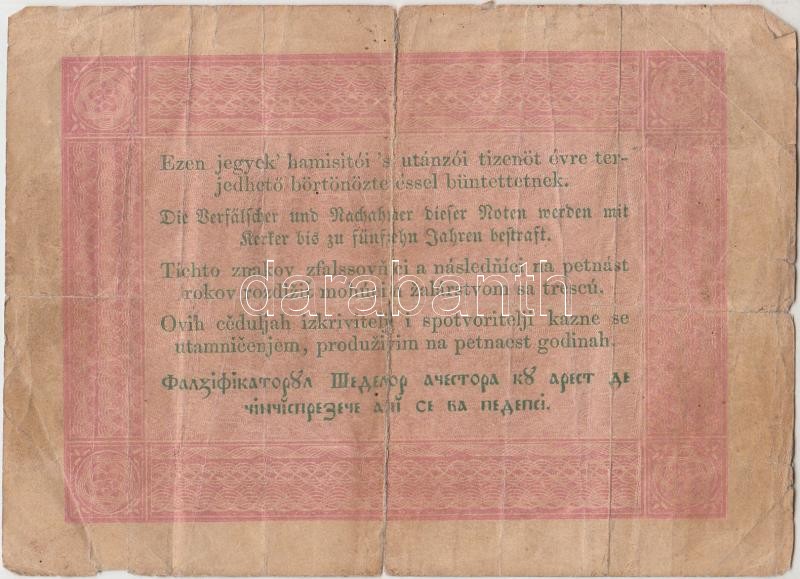 Ezen jegyek' hamisitói 's utánzói tizenöt évre ter-
jedhető börtönöztetéssel büntettetnek.
Die Verfälscher und Nachahmer dieser Noten werden mit
Kerker bis zu fünfzehn Jahren bestraft.
Tíchto znakov zfalssovňíci a následňíci na petnást
rokov rozdížiť mohúci zalárstvom sa trescú.
darabanth
Ovih cěduljah izkrivitelji i spotvoritelji kazne se
utamničenjem, produživim na petnaest godinah.
Фалзіфікаторꙋл Шеделор ачестора кꙋ арест де
чінчіспрезече анї се ва педепсі.